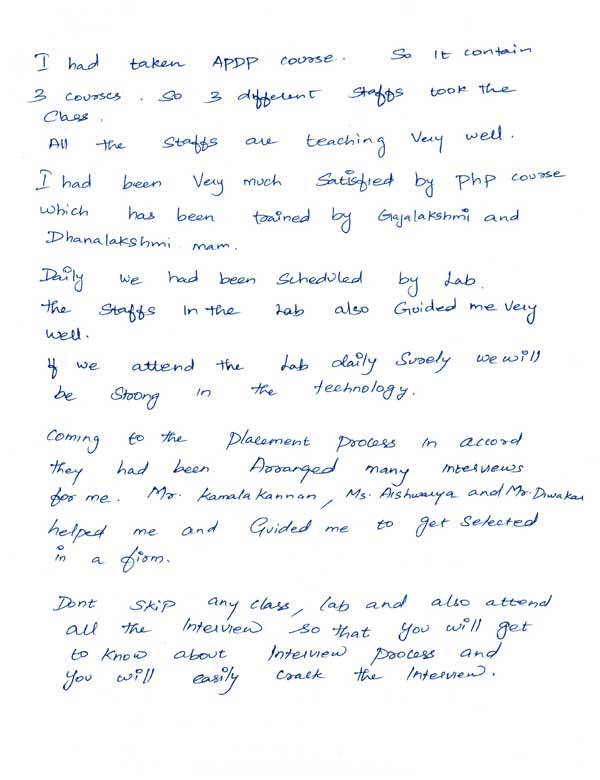 I had taken APDP course. So It contain
3 courses. So 3 different Staffs took the
Class.
All the Staffs are teaching Very well.
I had been Very much Satisfied by PhP course
which has been trained by Gajalakshmi and
Dhanalakshmi mam.
Daily we had been Scheduled by Lab.
the Staffs In the Lab also Guided me Very
well.
If we attend the Lab daily Surely we will
be Strong in the technology.
Coming to the Placement Process in accord
they had been Arranged many Interviews
for me. Mr. Kamalakannan, Ms. Aishwarya and Mr. Diwakar
helped me and Guided me to get Selected
in a firm.
Dont Skip any class, lab and also attend
all the Interview so that You will get
to know about Interview Process and
You will easily crack the Interview.